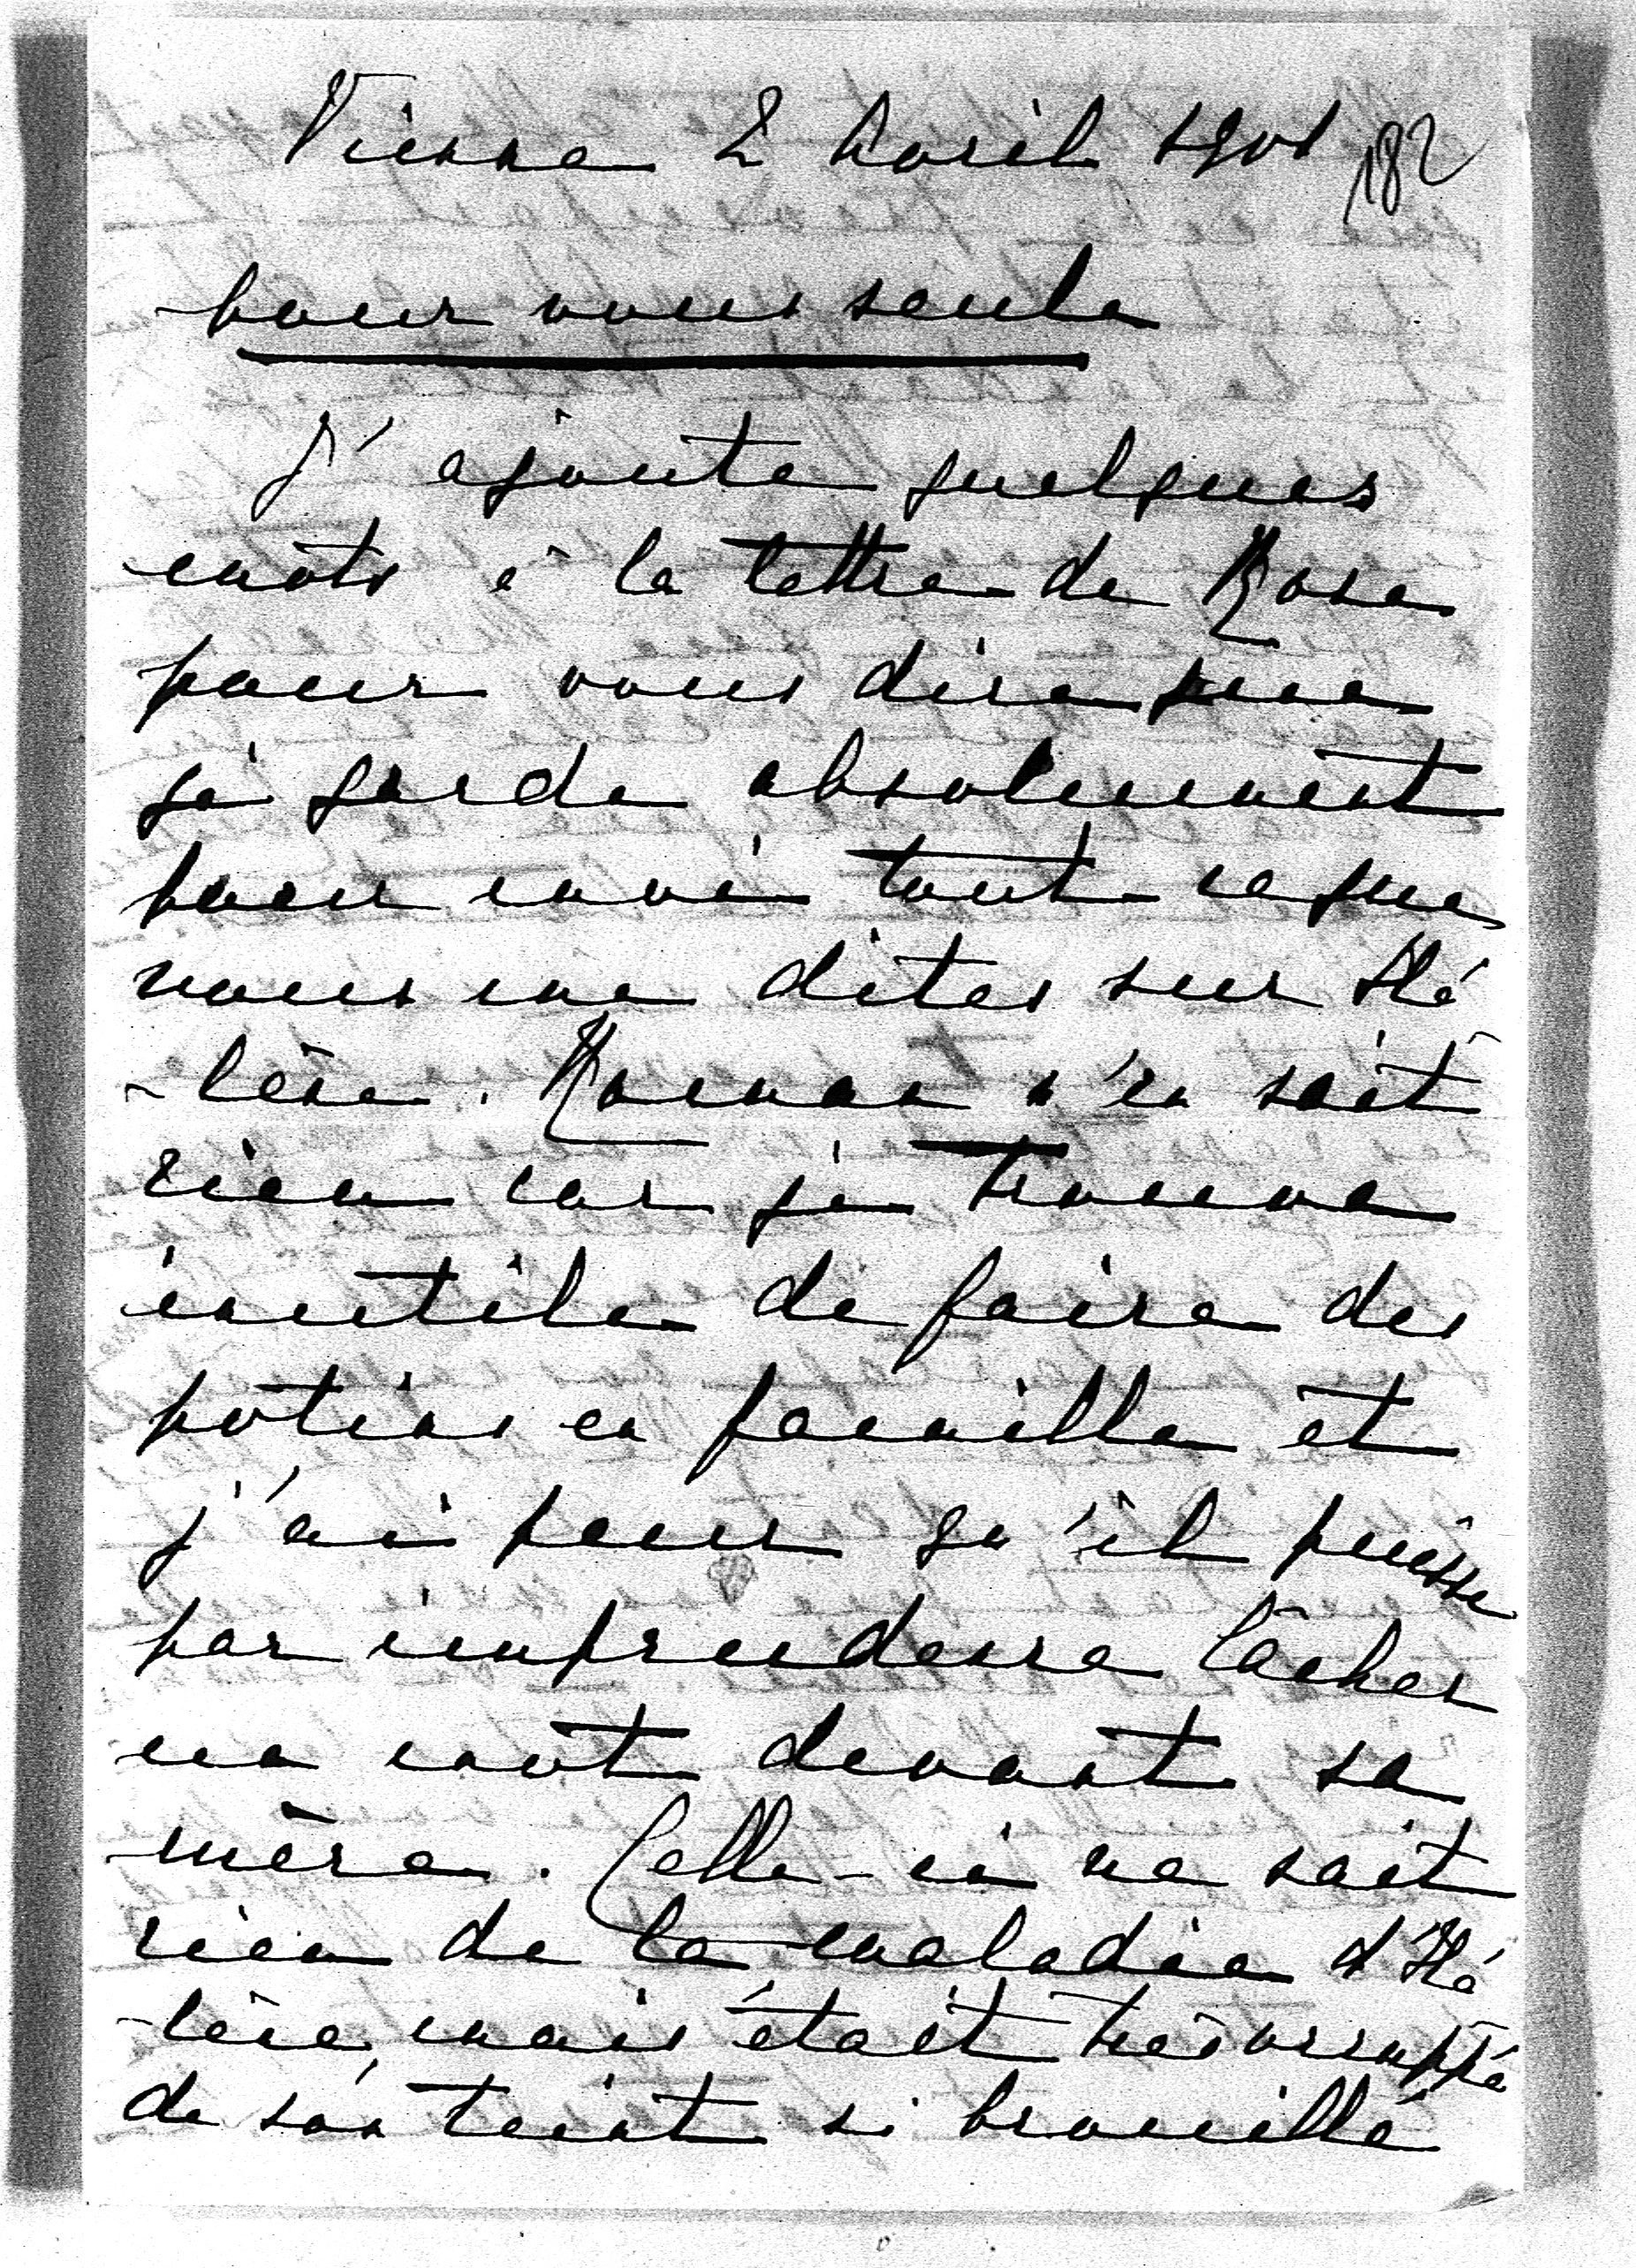 Vienne 2 Avril 1901 182
pour vous seule
J'ajoute quelques
mots à la lettre de Rose
pour vous dire que
je garde absolument
pour moi tout ce que
vous me dites sur Hé
-lène. Roman n'en sait
rien car je trouve
inutile de faire des
potins en famille et
j'ai peur qu'il puisse
par imprudence lâcher
un mot devant sa
mère. Celle-ci ne sait
rien de la maladie d'Hé
-lène, mais était très
de son teint si brouillé